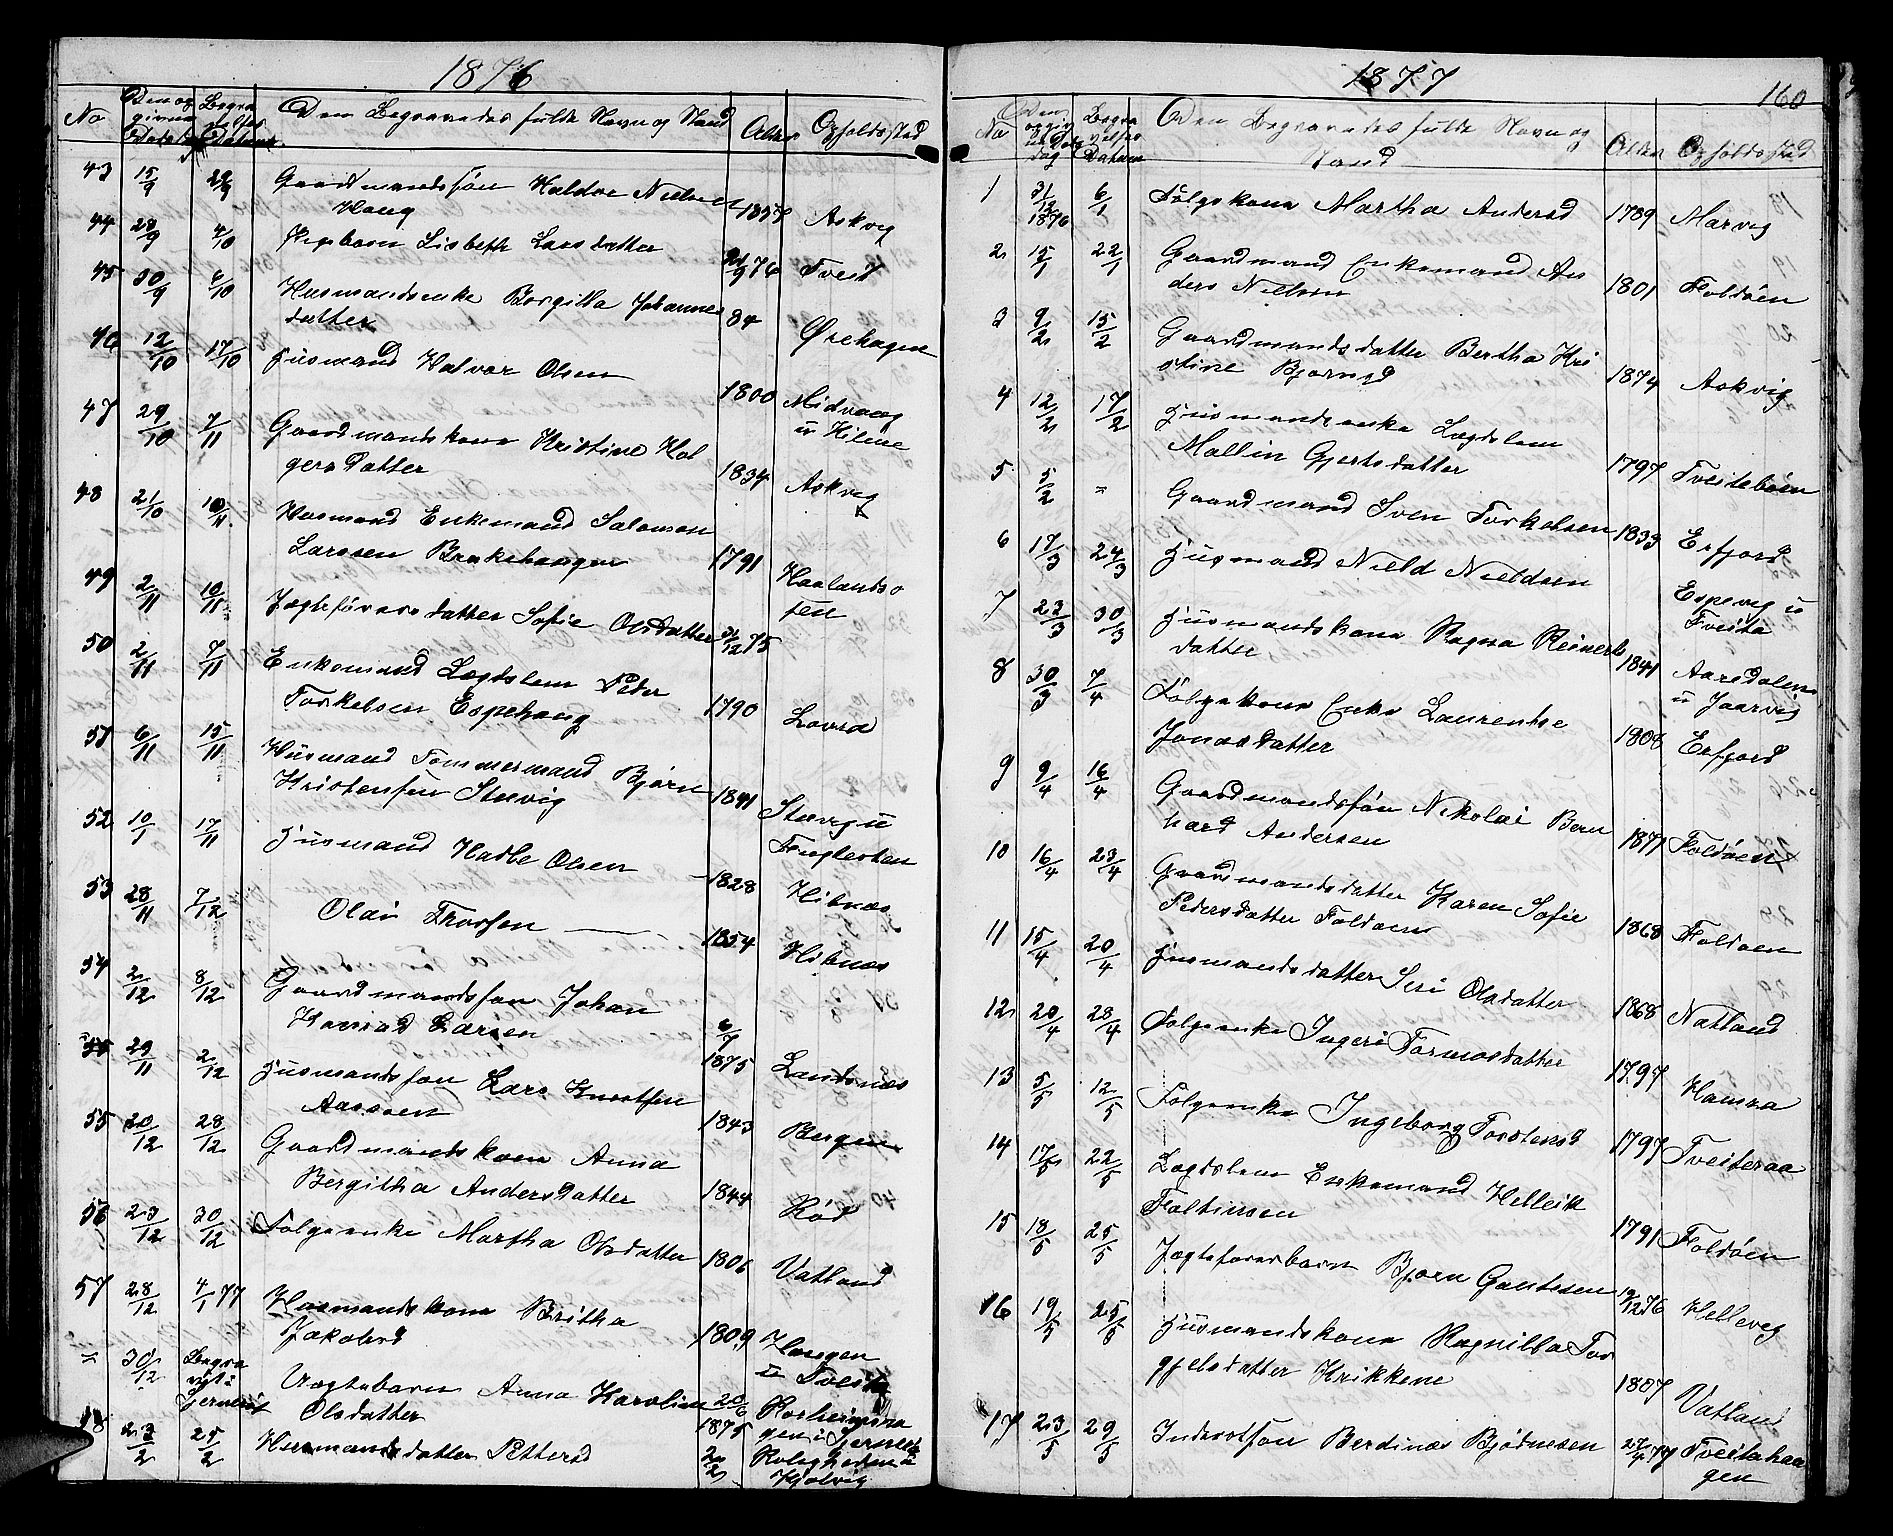 1876
No Den og givne Dødsdag Begravelses Datum Den Begravedes fulde Navn og Stand Alder Opholdssted
43 15/9 22/9 Gaardmandssøn Haldor Nielsen
Haug 1857 Askvig
44 28/9 4/10 Pigebarn Lisbeth Larsdatter 21/9 76 Tveit
45 30/9 6/10 Husmandsenke Borgilla Johannes
datter 84 Ørehagen
46 12/10 17/10 Husmand Halvor Olsen 1800 Midvaag
u Hilene
47 29/10 7/11 Gaardmandskone Kristine Hol
gersdatter 1834 Askvig
48 21/10 10/11 Husmand Enkemand Salomon
Larssen Brækehaugen 1791 Haalandso
sen
49 2/11 10/11 Jægteførersdatter Sofie Olsdatter 31/12 75
50 2/11 7/11 Enkemand Lægdslem Peder
Torkelsen Espehaug 1790 Lovra
51 6/11 15/11 Husmand Tømmermand Bjørn
Kristensen Stuvig 1841 Stuvig u
Fuglesten
52 10/1 17/11 Husmand Hadle Olsen 1828 Hibnæs
53 28/11 7/12 Olai Thorsen 1854 Hibnæs
54 2/12 8/12 Gaardmandssøn Johan
Konrad Larsen 6/7
1875 Landsnæs
55 29/11 2/12 Husmandssøn Lars Knudsen
Aassen 1843 Bergen
55 20/12 28/12 Gaardmandskone Anna
Bergitha Andersdatter 1844 Rød
56 23/12 30/12 Følgeenke Martha Olsdatter 1806 Vatland
57 28/12 4/1 77 Husmandskone Britha
Jakobsd 1809 Haugen
u Tveit
= 30/12 Begra
vet i
Jernerøt Uægtebarn Anna Karoline
Olsdatter 20/6
1875
58 23/2 25/2 Husmandsdatter Pettersd 20/2 Roligheden u
Hjelvig
1877
160
No Den opgivne Dødsdag Begravelses Datum Den Begravedes fulde Navn og
Stand Alder Opholdssted
1 31/12
1876 6/1 Følgekone Martha Andersd 1789 Marvig
2 15/1 22/1 Gaardmand Enkemand An
ders Nielsen 1801 Foldøen
3 9/2 15/2 Gaardmandsdatter Bertha Kri
stine Bjørnsd 1874 Askvig
4 12/2 17/2 Husmandsenke Lægdslem
Mallin Gjertsdatter 1797 Tveitebøen
5 5/2 = Gaardmand Sven Torkelsen 1833 Erfjord
6 17/3 24/3 Husmand Nield Nieldsen Espevig u
Tveita
7 23/3 30/3 Husmandskone Ragna Reinerts
datter 1841 Aarsdalen
u Jaarvig
8 30/3 7/4 Følgekone Enke Laurentse
Jonasdatter 1808 Erfjord
9 9/4 16/4 Gaardmandssøn Nikolai Bern
hard Andersen 1877 Foldøen
10 16/4 23/4 Gaardmandsdatter Karen Sofie
Pedersdatter Foldøen 1868 Foldøen
11 15/4 20/4 Husmandsdatter Siri Olsdatter 1868 Natland
12 20/4 28/4 Følgeenke Ingeri Tormosdatter 1797 Hamra
13 5/5 12/5 Følgeenke Ingeborg Torstensd 1797 Tveiteraa
14 17/5 22/5 Lægdslem Enkemand Helleik
Foltinsen 1791 Foldøen
15 18/5 25/5 Jægteførerbarn Bjørn Gautesen 19/12 76 Hellevig
16 19/5 25/5 Husmandskone Ragnilla Tor
gjelsdatter Krikkene 1807 Vatland
17 23/5 29/5 Inderstsøn Berdines Bjødnesen 27/4 77 Tveitahaa
gen